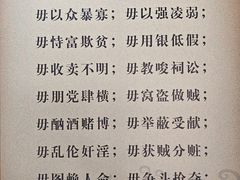 毋以众暴寡；毋以强凌弱；
毋恃富欺贫；毋用银低假；
毋收卖不明；毋教唆词讼；
毋朋党肆横；毋窝盗做贼；
毋酗酒赌博；毋举蔽受献；
毋乱伦奸淫；毋获贼分赃；
毋图赖人命；毋争斗抢夺